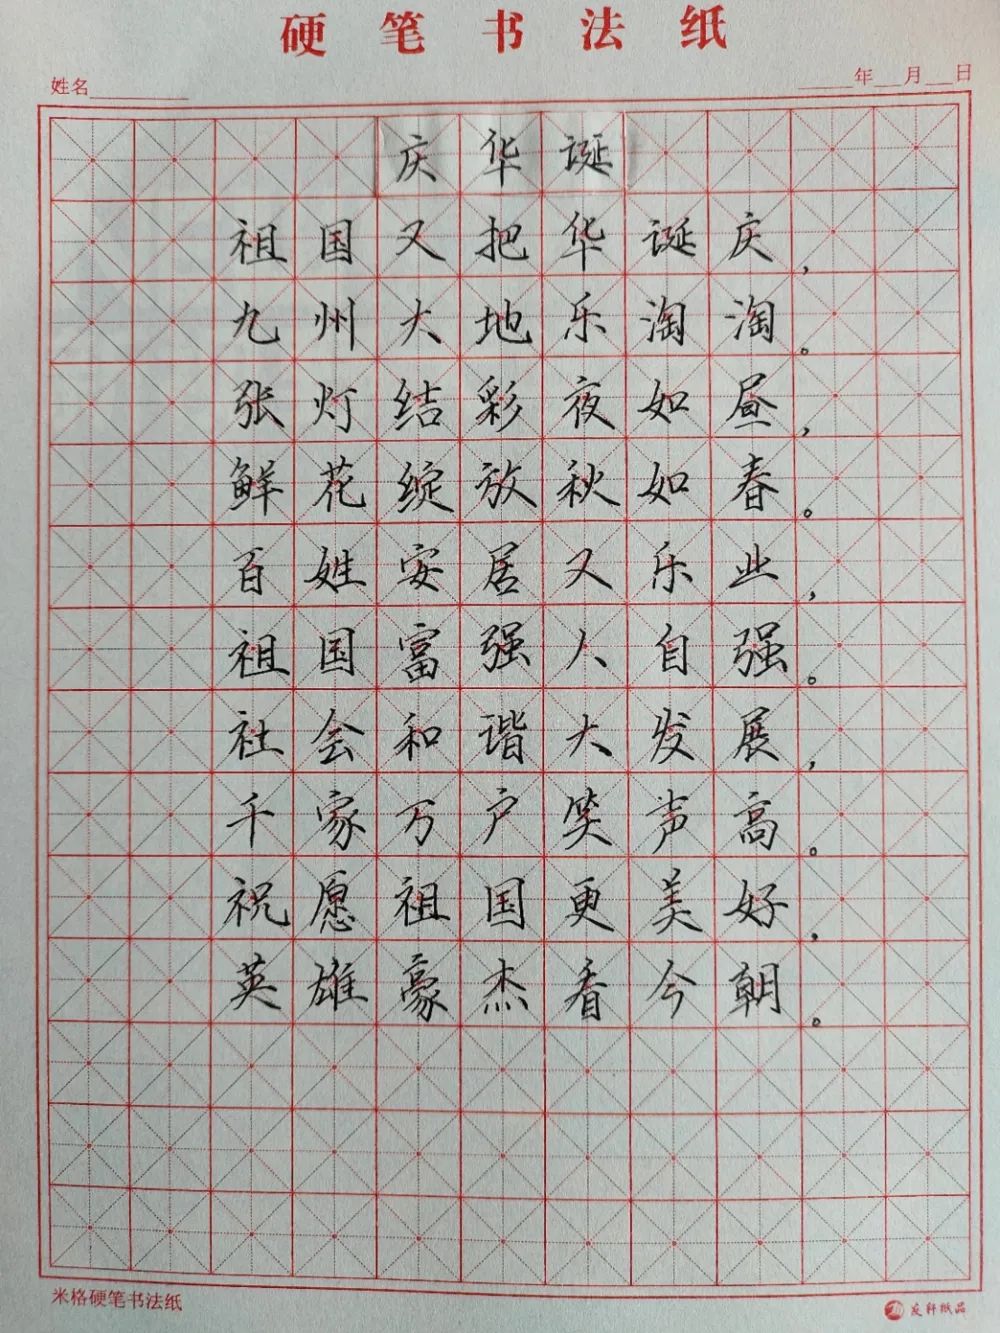 硬笔书法纸
姓名 年 月 日
庆华诞
祖国又把华诞庆，
九州大地乐淘淘。
张灯结彩夜如昼，
鲜花绽放秋如春。
百姓安居又乐业，
祖国富强人自强。
社会和谐大发展，
千家万户笑声高。
祝愿祖国更美好，
英雄豪杰看今朝。
米格硬笔书法纸
友轩纸品